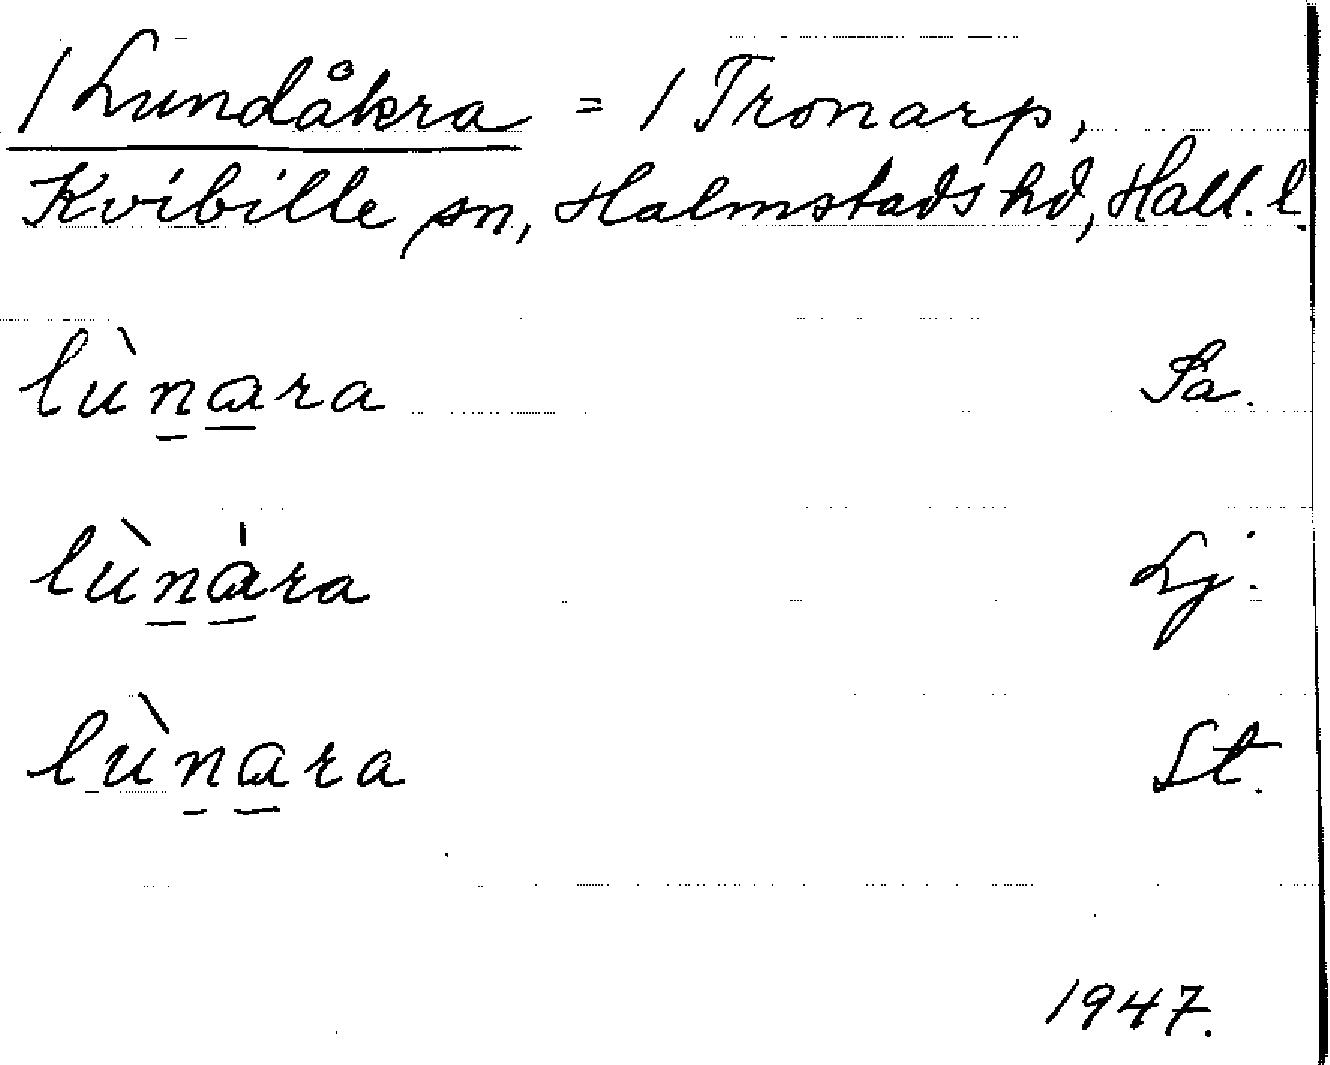 1 Lundåkra = 1 Tronarp,
Kvibille sn, Halmstads hd, Hall. l.
lùn̲a̲ra Sa.
lùn̲a̲̍ra Lj.
lùn̲a̲ra St.
1947.